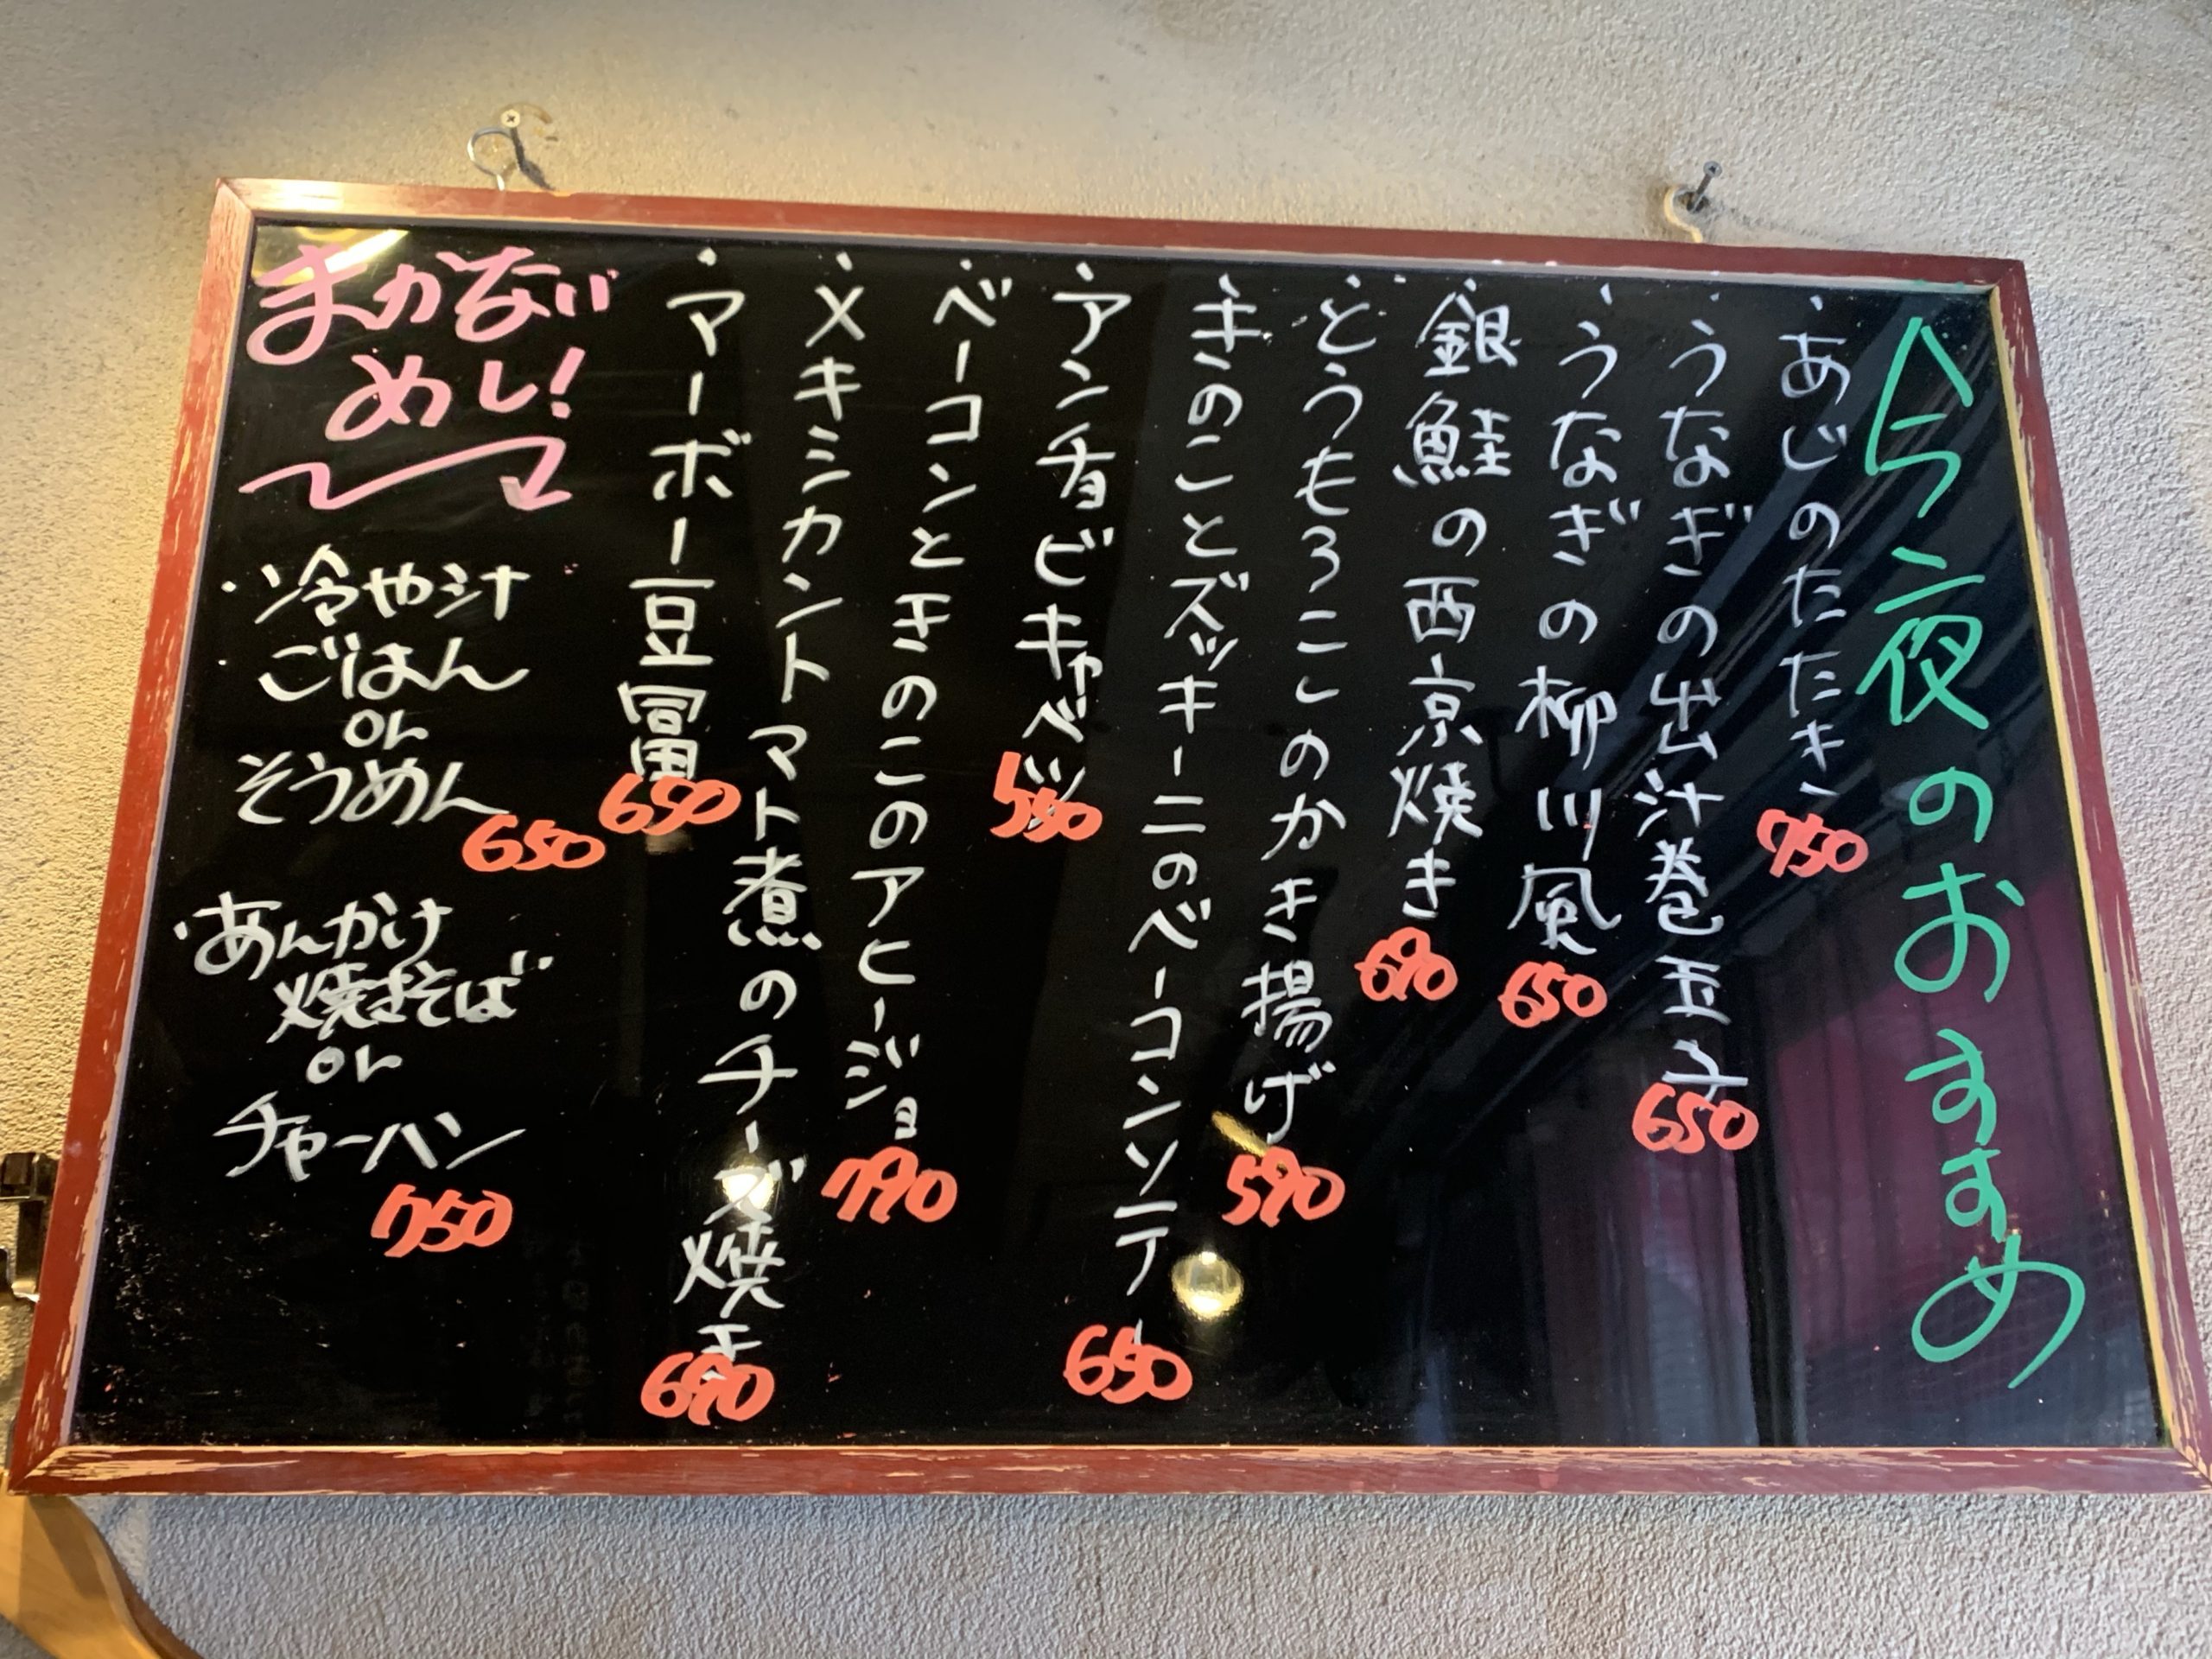 今夜のおすすめ
・あじのたたき 750
・うなぎの出汁巻玉子 650
・うなぎの柳川風 650
・銀鮭の西京焼き 690
・とうもろこしのかき揚げ 590
・きのことズッキーニのベーコンソテー 650
・アンチョビキャベツ 550
・ベーコンときのこのアヒージョ 790
・メキシカントマト煮のチーズ焼き 690
・マーボー豆冨 650
まかない
めし!
・冷や汁
ごはん
or
そうめん 650
・あんかけ
焼きそば
or
チャーハン 750